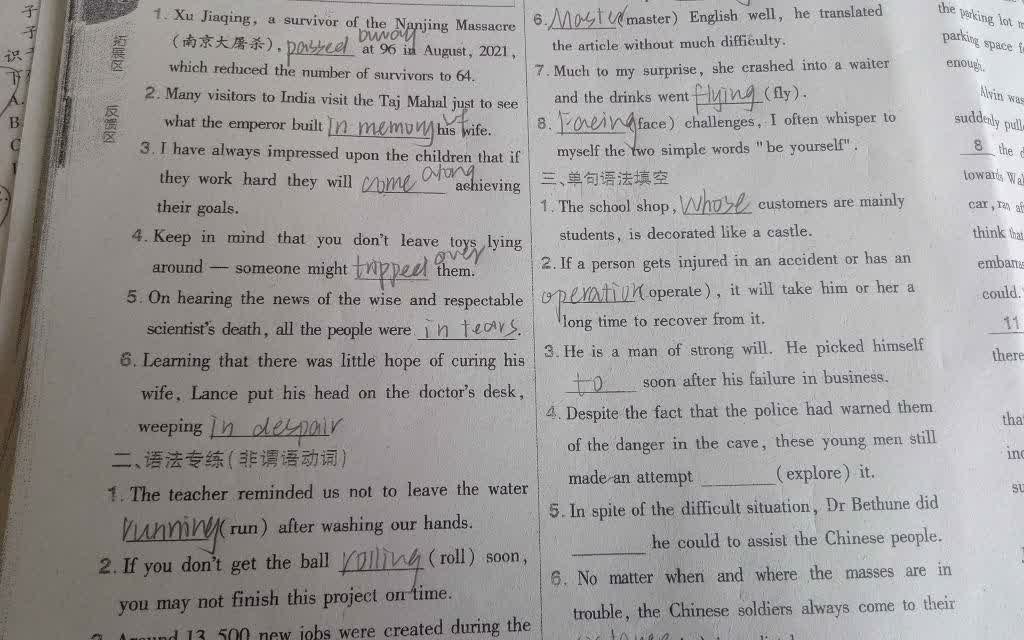 子
子
识
下
A.
B
C
拓展区
反馈区
1. Xu Jiaqing, a survivor of the Nanjing Massacre
(南京大屠杀), passed away at 96 in August, 2021,
which reduced the number of survivors to 64.
2. Many visitors to India visit the Taj Mahal just to see
what the emperor built In memory of his wife.
3. I have always impressed upon the children that if
they work hard they will come along achieving
their goals.
4. Keep in mind that you don't leave toys lying
around — someone might tripped over them.
5. On hearing the news of the wise and respectable
scientist's death, all the people were in tears.
6. Learning that there was little hope of curing his
wife, Lance put his head on the doctor's desk,
weeping In despair
二、语法专练(非谓语动词)
1. The teacher reminded us not to leave the water
running (run) after washing our hands.
2. If you don't get the ball rolling (roll) soon,
you may not finish this project on time.
3. Around 13,500 new jobs were created during the
6. (master) English well, he translated
the article without much difficulty.
7. Much to my surprise, she crashed into a waiter
and the drinks went flying (fly).
8. Facing (face) challenges, I often whisper to
myself the two simple words "be yourself".
三、单句语法填空
1. The school shop, whose customers are mainly
students, is decorated like a castle.
2. If a person gets injured in an accident or has an
operation (operate), it will take him or her a
long time to recover from it.
3. He is a man of strong will. He picked himself
to soon after his failure in business.
4. Despite the fact that the police had warned them
of the danger in the cave, these young men still
made an attempt ______ (explore) it.
5. In spite of the difficult situation, Dr Bethune did
______ he could to assist the Chinese people.
6. No matter when and where the masses are in
trouble, the Chinese soldiers always come to their
the parking lot
parking space
enough.
Alvin was
suddenly
8 the
towards
car, ran
think that
could.
11
there